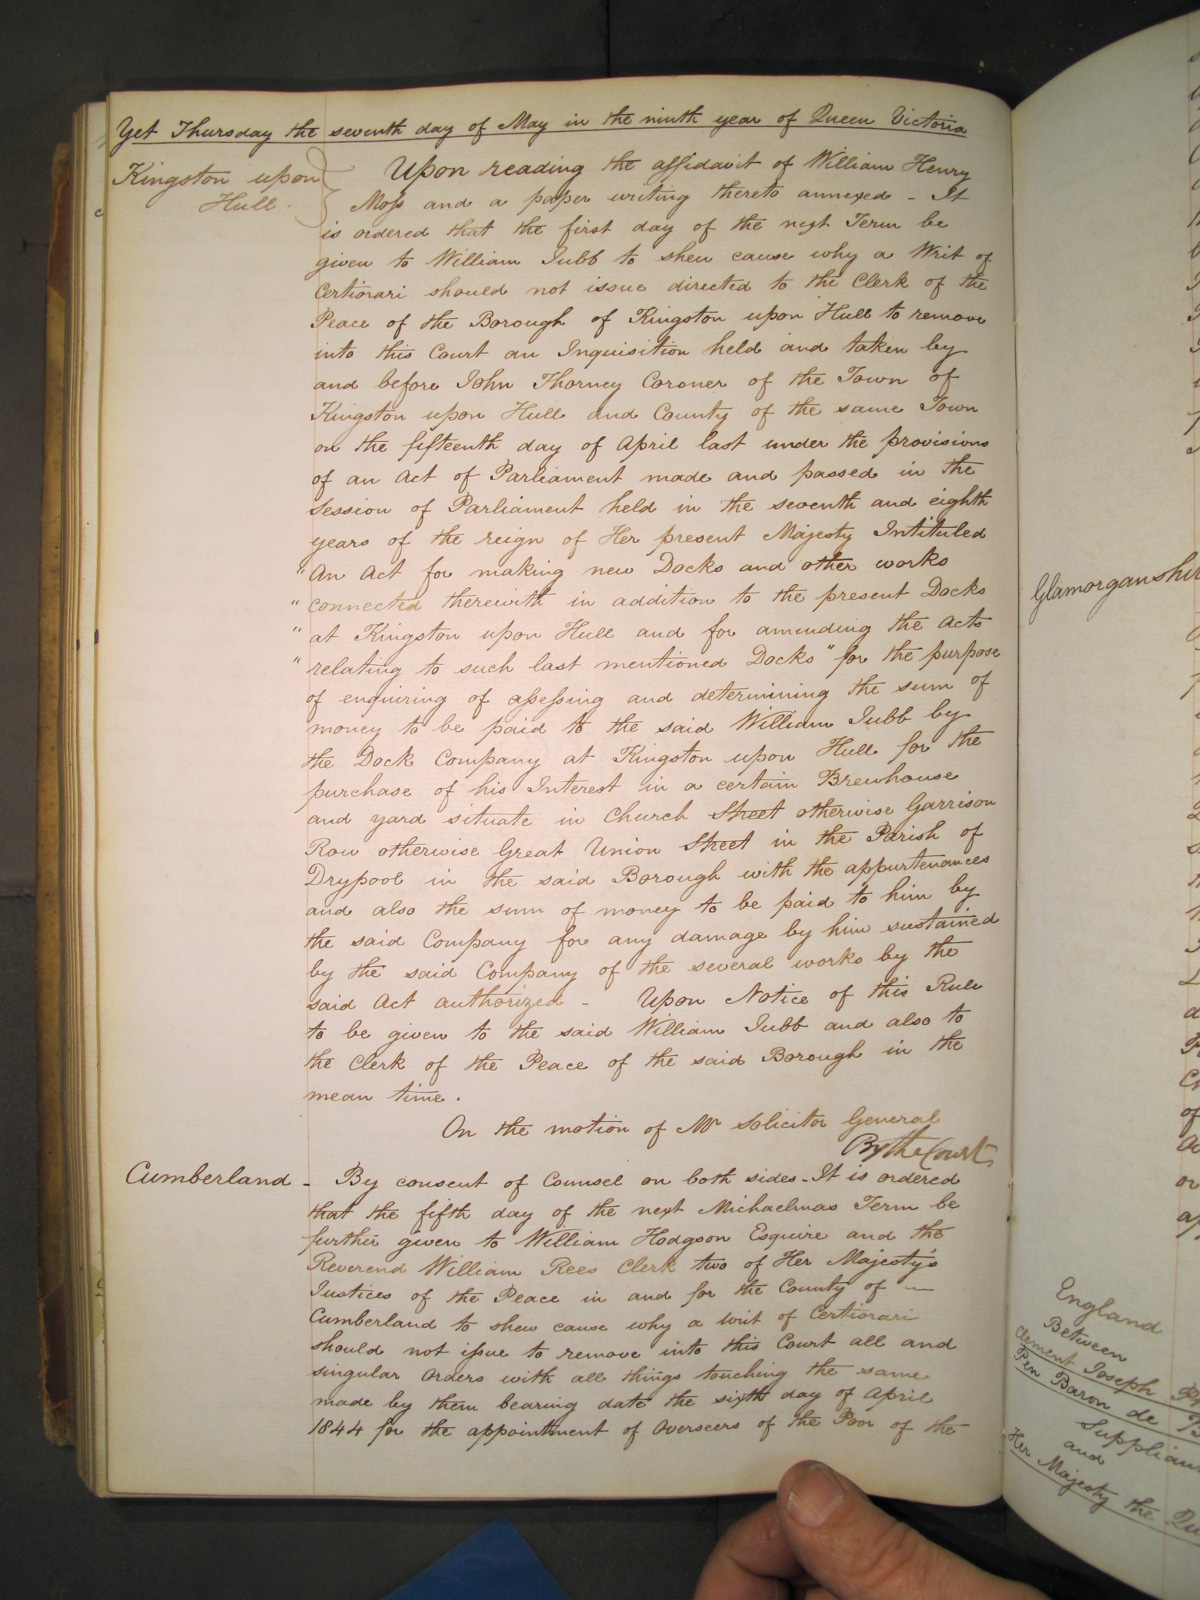 Yet Thursday the seventh day of May in the ninth year of Queen Victoria
Kingston upon
Hull.
Upon reading the affidavit of William Henry
Moss and a paper writing thereto annexed - It
is ordered that the first day of the next Term be
given to William Jubb to shew cause why a Writ of
Certiorari should not issue directed to the Clerk of the
Peace of the Borough of Kingston upon Hull to remove
into this Court an Inquisition held and taken by
and before John Thorney Coroner of the Town of
Kingston upon Hull and County of the same Town
on the fifteenth day of April last under the provisions
of an Act of Parliament made and passed in the
Session of Parliament held in the seventh and eighth
years of the reign of Her present Majesty Intituled
"An Act for making new Docks and other works
"connected therewith in addition to the present Docks
"at Kingston upon Hull and for amending the Acts
"relating to such last mentioned Docks" for the purpose
of enquiring of assessing and determining the sum of
money to be paid to the said William Jubb by
the Dock Company at Kingston upon Hull for the
purchase of his Interest in a certain Brewhouse
and yard situate in Church Street otherwise Garrison
Row otherwise Great Union Street in the Parish of
Drypool in the said Borough with the appurtenances
and also the sum of money to be paid to him by
the said Company for any damage by him sustained
by the said Company of the several works by the
said Act authorized - Upon Notice of this Rule
to be given to the said William Jubb and also to
the Clerk of the Peace of the said Borough in the
mean time.
On the motion of Mr Solicitor General
By the Court
Cumberland - By consent of Counsel on both sides - It is ordered
that the fifth day of the next Michaelmas Term be
further given to William Hodgson Esquire and the
Reverend William Rees Clerk two of Her Majesty's
Justices of the Peace in and for the County of
Cumberland to shew cause why a writ of Certiorari
should not issue to remove into this Court all and
singular Orders with all things touching the same
made by them bearing date the sixth day of April
1844 for the appointment of Overseers of the Poor of the
Glamorganshire
England
Between
Clement Joseph
Pen Baron de
Suppliant
and
Her Majesty the